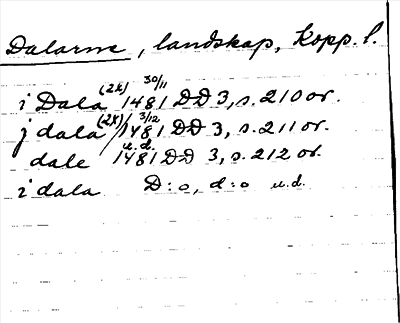 Dalarne, landskap, Kopp. l.
i Dala (2x) 30/11 1481 DD 3, s. 210 or.
j dala (2x) 3/12 1481 DD 3, s. 211 or.
dale u.d. 1481 DD 3, s. 212 or.
i dala D:o, d:o u.d.